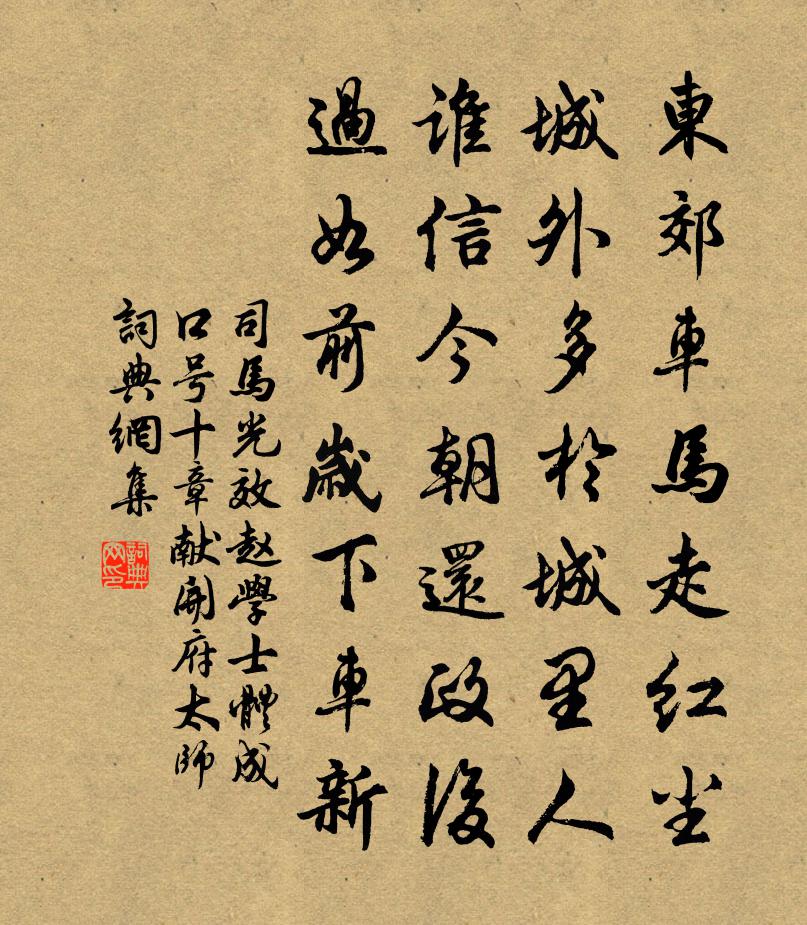 東郊車馬走紅尘
城外多於城里人
誰信今朝還政後
過如前歲下車新
司馬光效赵學士體成
口号十章献開府太師
詞典網集
詞典網印